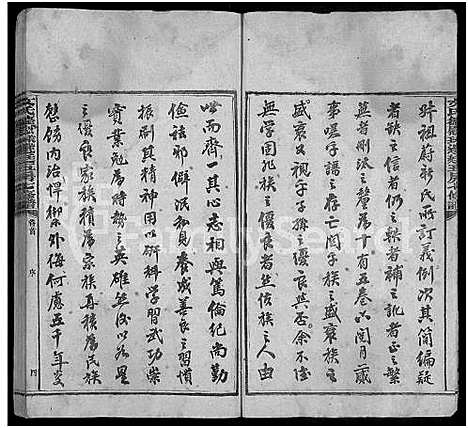 昨祖蔚新氏所訂義例次其简編疑
者缺之信者仍之軼者補之訛者正之繁
蕪者刪汰之釐為十有五卷六閱月
事嗟乎譜之存亡關乎族之盛衰族之
盛衰視乎子孫之優良與否余不佞
無學固非族之優良者然信族之人由
此而齊一其心志相與篤倫紀尚勤
儉祛邪僻汎私見養成善良之習慣
振刷其精神用以研科學習武功崇
實業冠為時勢之英雄然後以為
之優良家族積為宗族再積為民族
整飭内治悍禦外侮何慮五千年
卷首
序
四